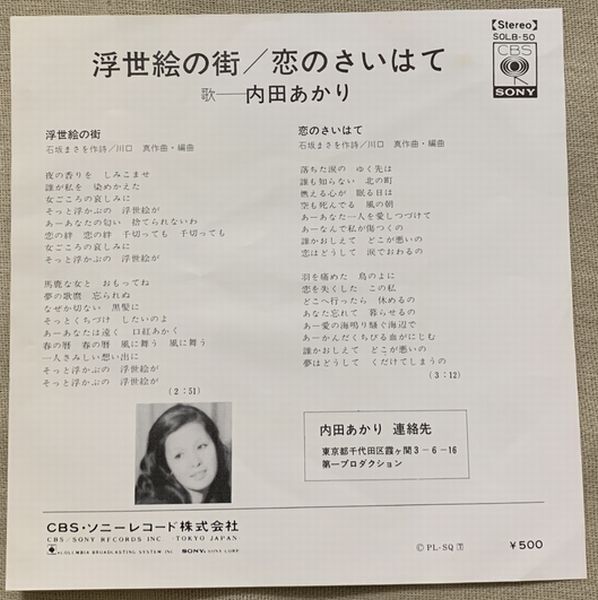 【Stereo】
SOLB・50
CBS
SONY
浮世絵の街／恋のさいはて
歌──内田あかり
浮世絵の街
石坂まさを作詩／川口　真作曲・編曲
夜の香りを　しみこませ
誰が私を　染めかえた
女ごころの哀しみに
そっと浮かぶの　浮世絵が
あーあなたの匂い　捨てられないわ
恋の絆　恋の絆　千切っても　千切っても
女ごころの哀しみに
そっと浮かぶの　浮世絵が
馬鹿な女と　おもってね
夢の歌麿　忘られぬ
なぜか切ない　黒髪に
そっとくちづけ　したいのよ
あーあなたは遠く　口紅あかく
春の暦　春の暦　風に舞う　風に舞う
一人さみしい想い出に
そっと浮かぶの　浮世絵が
そっと浮かぶの　浮世絵が
(2:51)
恋のさいはて
石坂まさを作詩／川口　真作曲・編曲
落ちた涙の　ゆく先は
誰も知らない　北の町
燃える心が　眠る日は
空も死んでる　風の朝
あーあなた一人を愛しつづけて
あーなんで私が傷つくの
誰かおしえて　どこが悪いの
恋はどうして　涙でおわるの
羽を痛めた　鳥のよに
恋を失くした　この私
どこへ行ったら　休めるの
あなた忘れて　暮らせるの
あー愛の海鳴り騒ぐ海辺で
あーかんだくちびる血がにじむ
誰かおしえて　どこが悪いの
夢はどうして　くだけてしまうの
(3:12)
内田あかり　連絡先
東京都千代田区霞ヶ関3－6－16
第一プロダクション
CBS・ソニーレコード株式会社
CBS/SONY RECORDS INC. (TOKYO JAPAN)
COLUMBIA BROADCASTING SYSTEM INC. SONY, SONY CORP.
Ⓒ PL-SQ Ⓣ
￥500